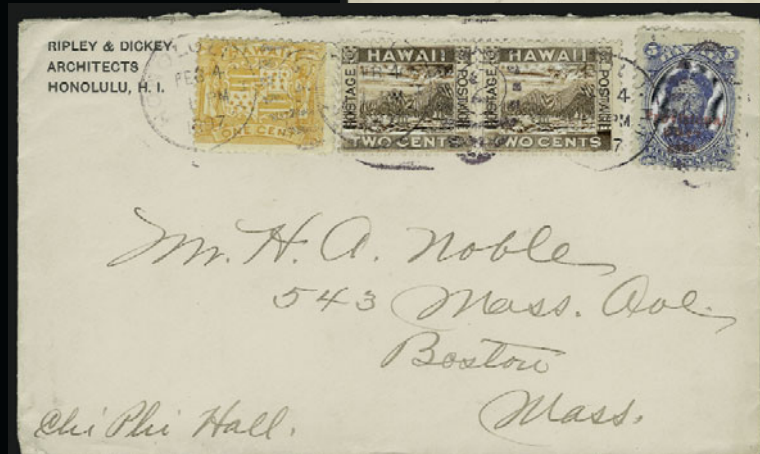 RIPLEY & DICKEY
ARCHITECTS
HONOLULU, H. I.
FEB 4
ONE CENT
HAWAII
POSTAGE POSTAGE
TWO CENTS
HAWAII
POSTAGE POSTAGE
TWO CENTS
4
PM
7
5 5
Mr. H. A. Noble
543 Mass. Ave.
Boston
Mass.
Chi Phi Hall.